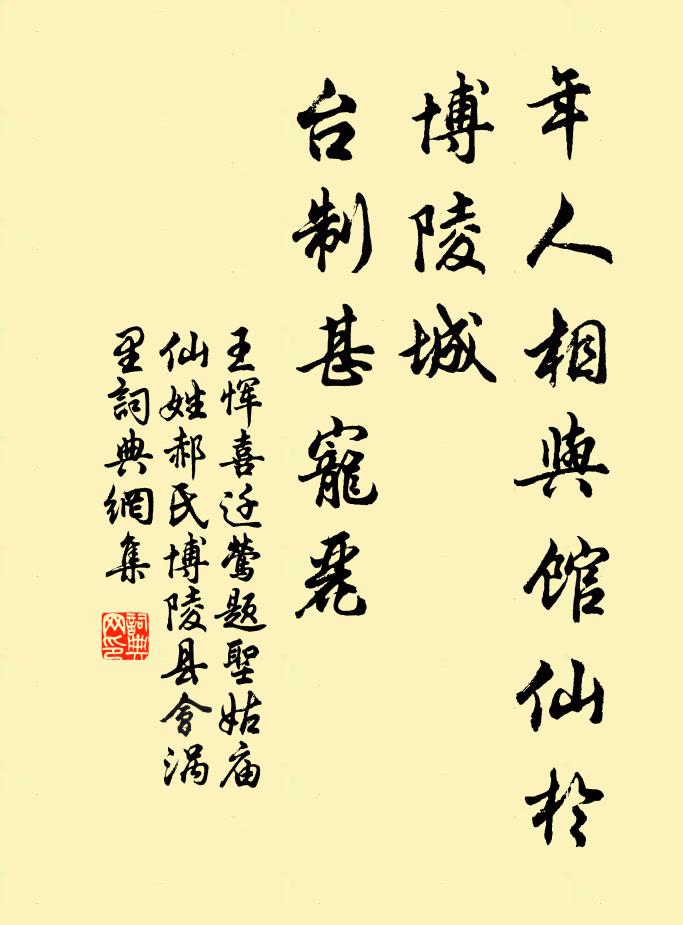 年人相與館仙於
博陵城
台制甚寵麗
王惲喜迁鶯題聖姑庙
仙姓郝氏博陵县會渦
里詞典網集
詞典网印